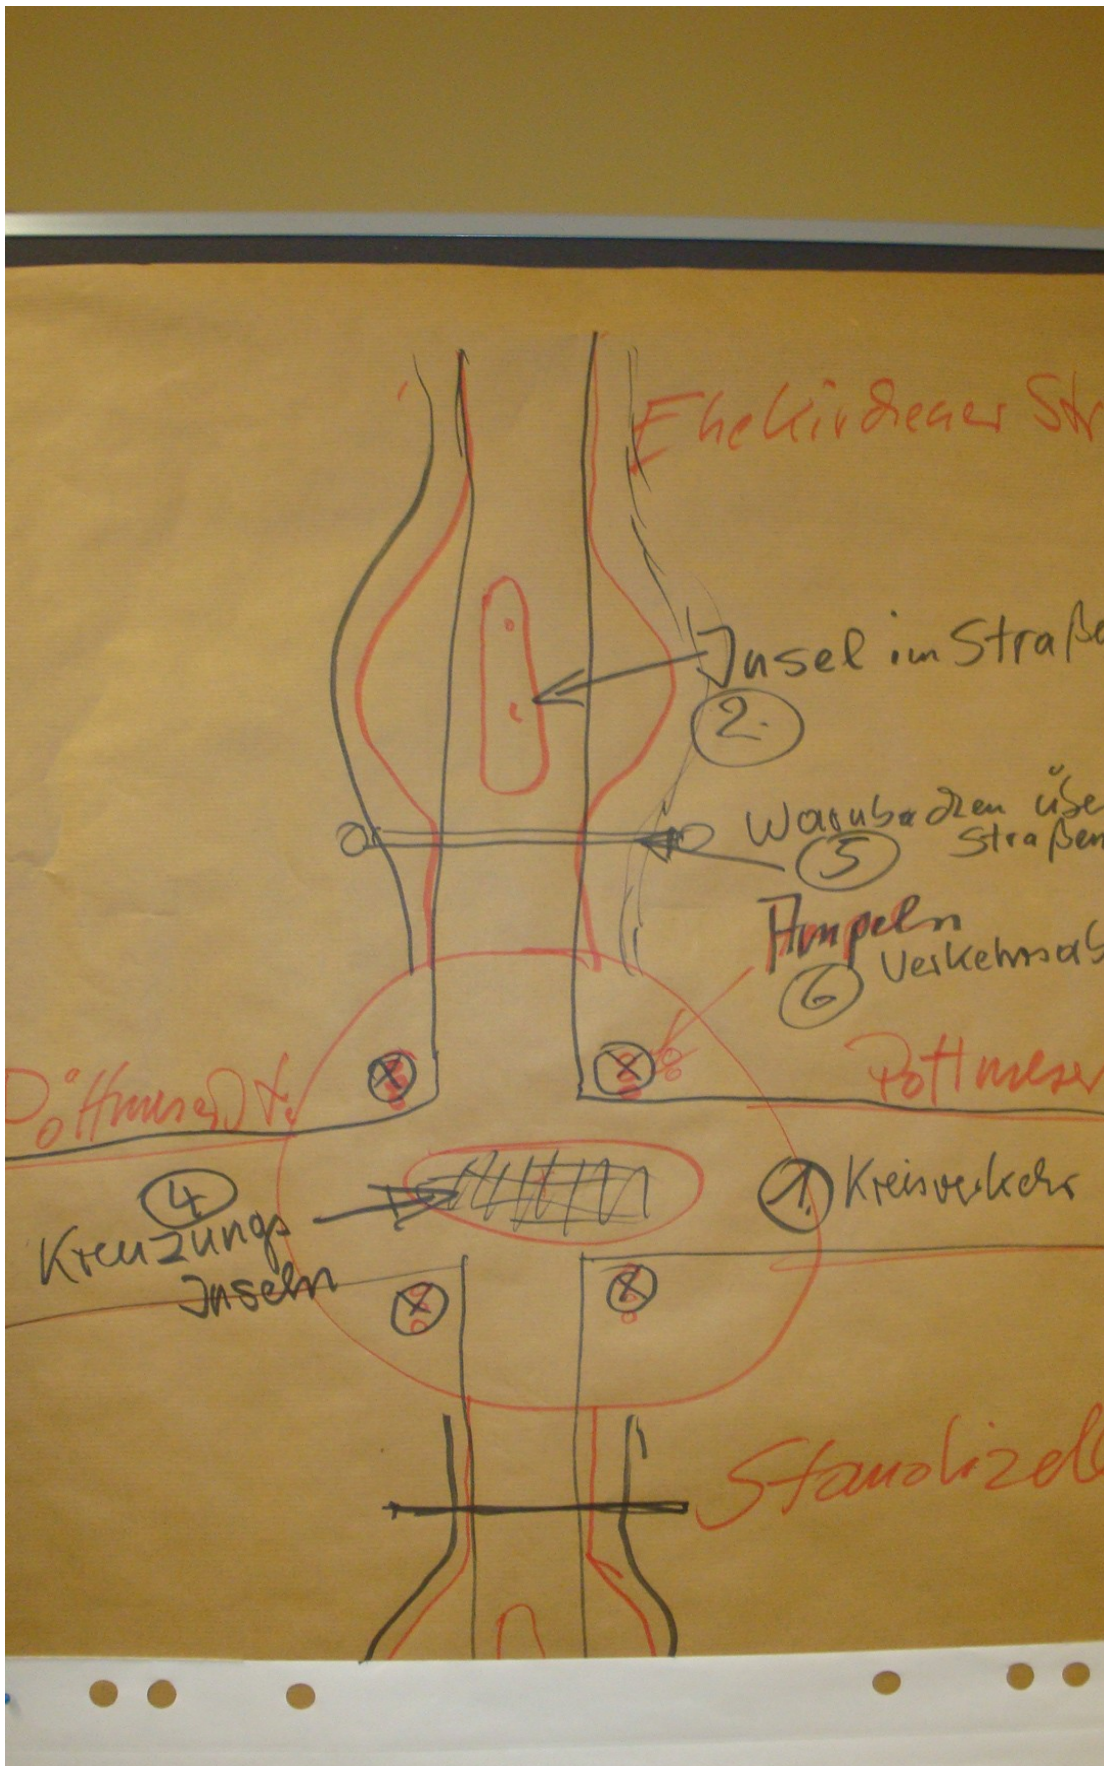 Ehekirchener Str
Insel im Straße
2.
Warnbacken übe
Straßen
5
Ampeln
Verkehrsab
6
Pöttmeser Str.
Pöttmeser
4
Kreuzungs
Inseln
1.
Kreisverkehr
Standizell